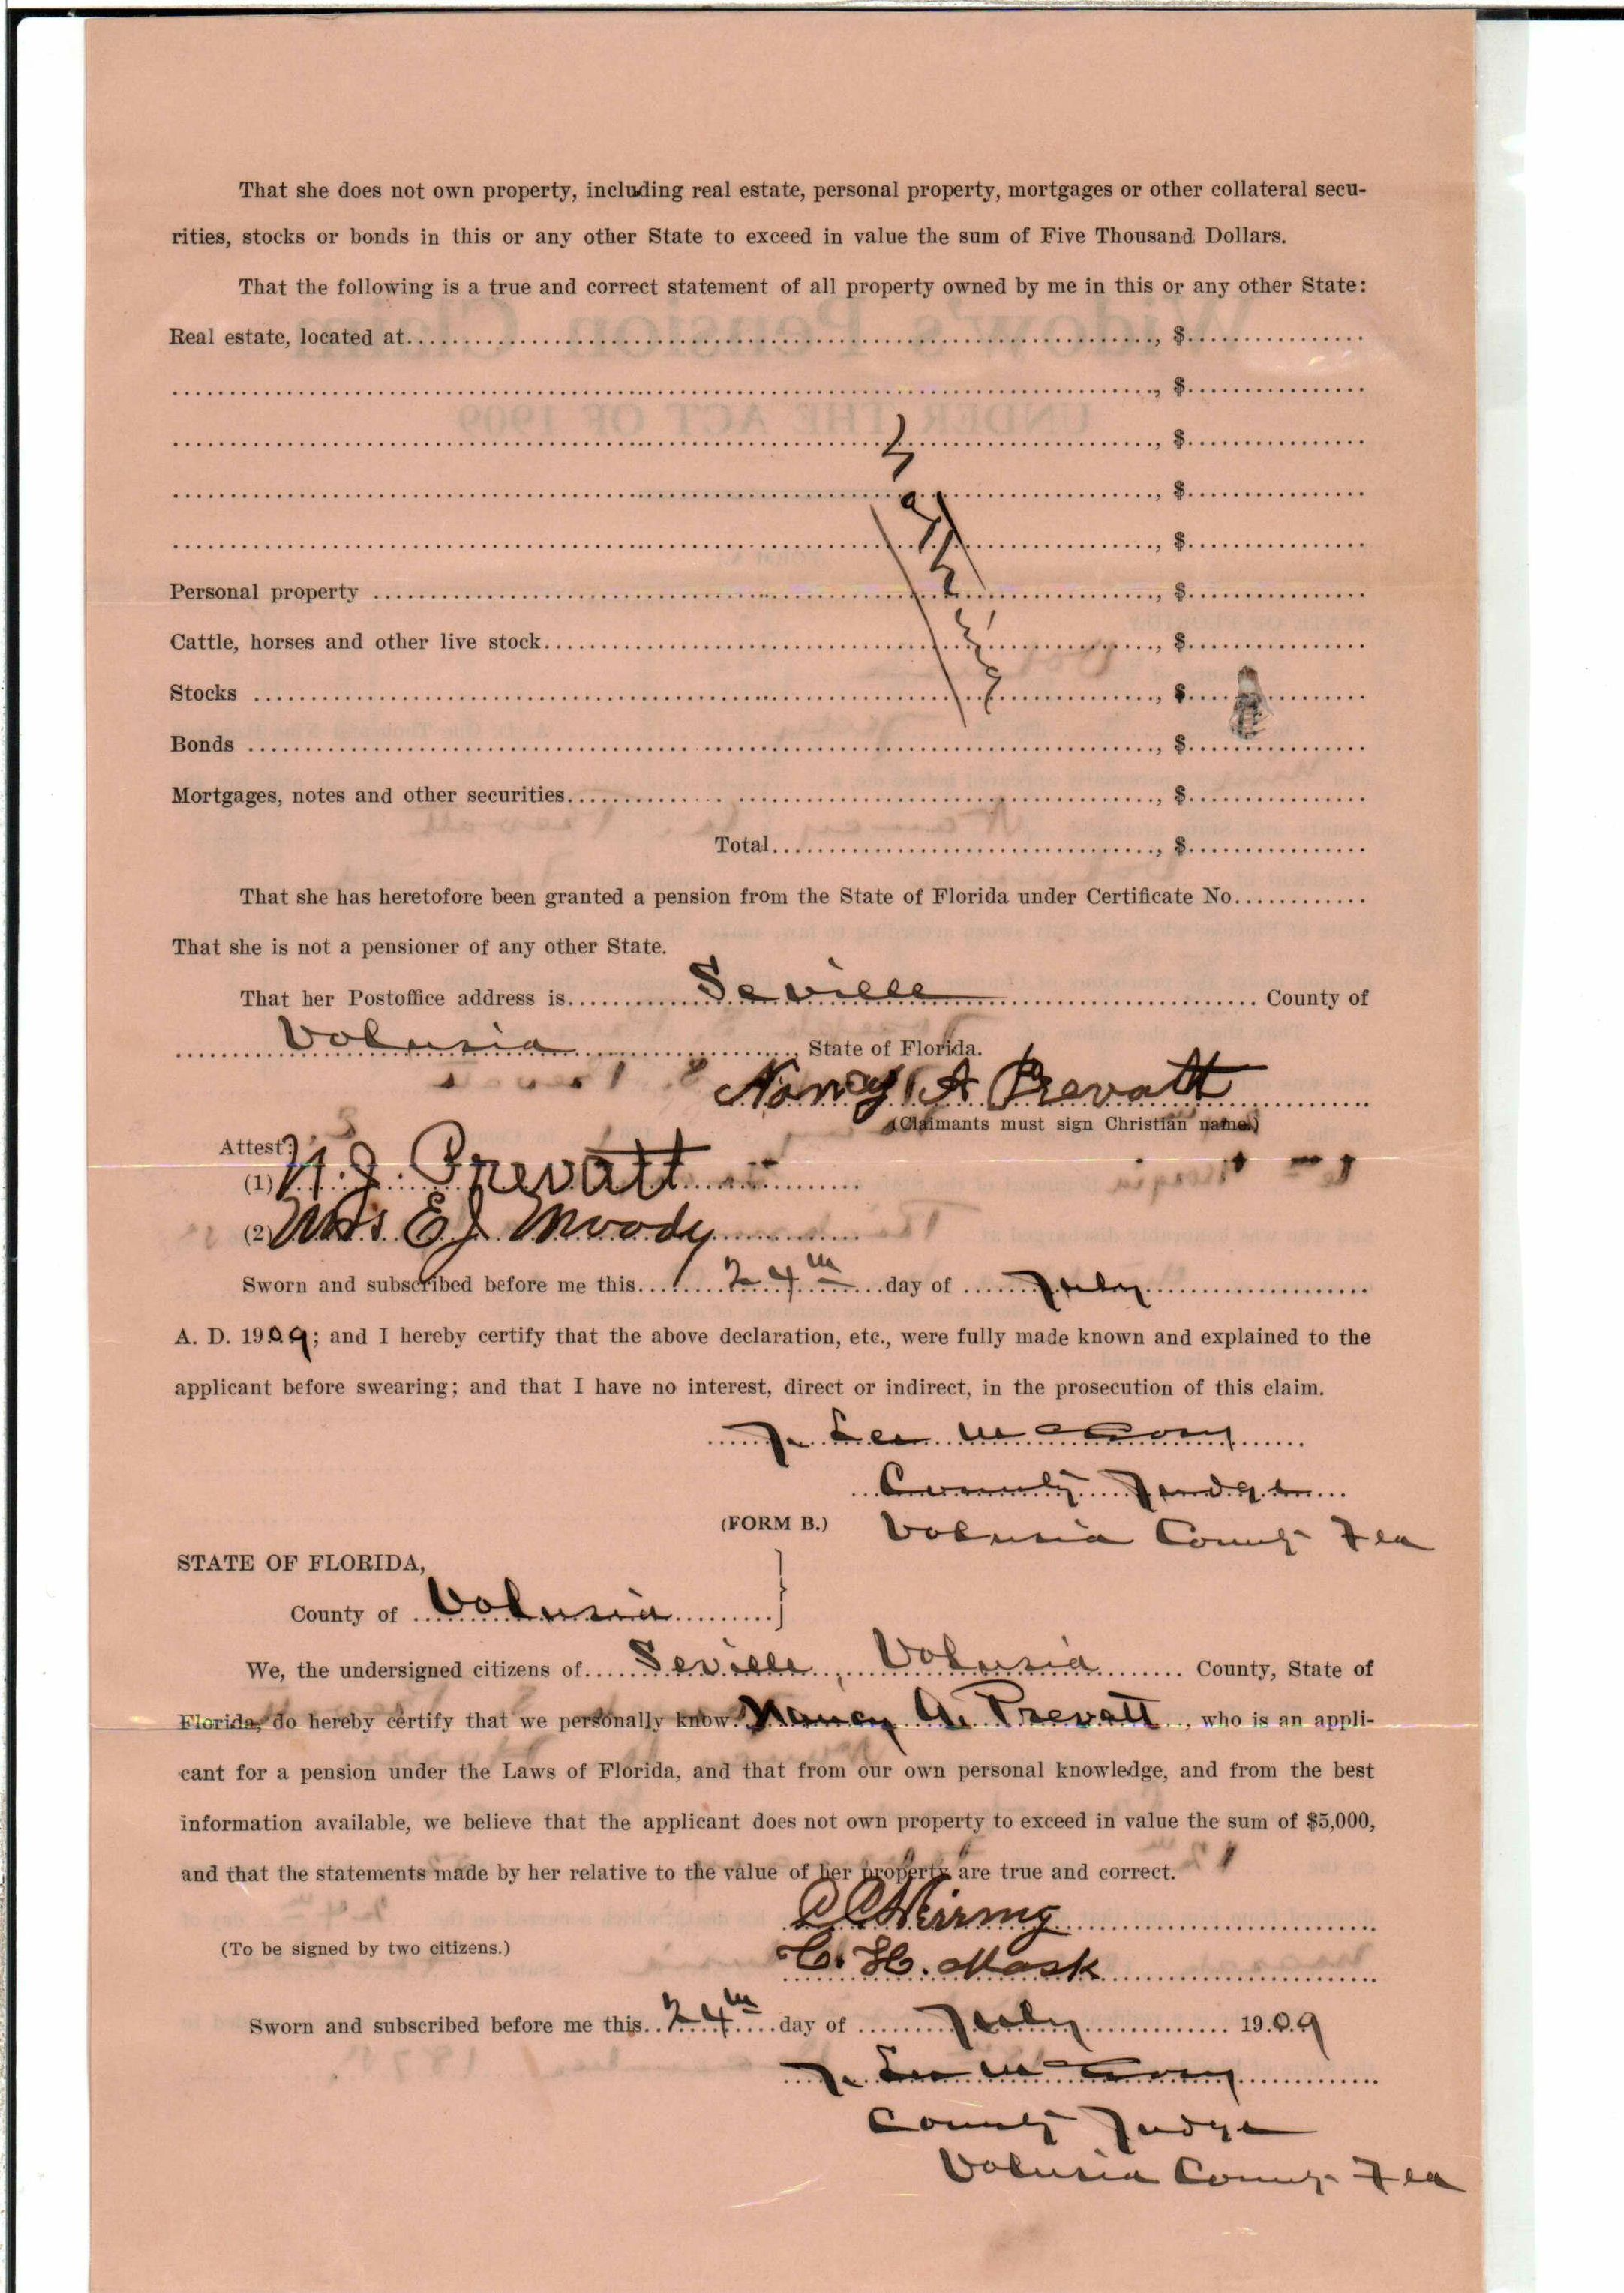 That she does not own property, including real estate, personal property, mortgages or other collateral secu-
rities, stocks or bonds in this or any other State to exceed in value the sum of Five Thousand Dollars.
That the following is a true and correct statement of all property owned by me in this or any other State:
Real estate, located at........, $........
........, $........
........, $........
........, $........
........, $........
Personal property ........, $........
Cattle, horses and other live stock........, $........
Stocks ........, $........
Bonds ........, $........
Mortgages, notes and other securities........, $........
Total........, $........
That she has heretofore been granted a pension from the State of Florida under Certificate No........
That she is not a pensioner of any other State.
That her Postoffice address is.... Seville .... County of
.... Volusia ...., State of Florida.
Nancy A Prevatt
(Claimants must sign Christian name.)
Attest:
(1) N. J. Prevatt
(2) Mrs E J Moody
Sworn and subscribed before me this.... 24th ....day of .... July ....
A. D. 1909; and I hereby certify that the above declaration, etc., were fully made known and explained to the
applicant before swearing; and that I have no interest, direct or indirect, in the prosecution of this claim.
J. Lee McCrory
County Judge
(FORM B.) Volusia County Fla
STATE OF FLORIDA,
County of .... Volusia ....
We, the undersigned citizens of.... Seville, Volusia .... County, State of
Florida, do hereby certify that we personally know. Nancy A. Prevatt .., who is an appli-
cant for a pension under the Laws of Florida, and that from our own personal knowledge, and from the best
information available, we believe that the applicant does not own property to exceed in value the sum of $5,000,
and that the statements made by her relative to the value of her property are true and correct.
(To be signed by two citizens.)
C. H. Mask
Sworn and subscribed before me this.. 24th ....day of .... July .... 1909
J. Lee McCrory
County Judge
Volusia County Fla